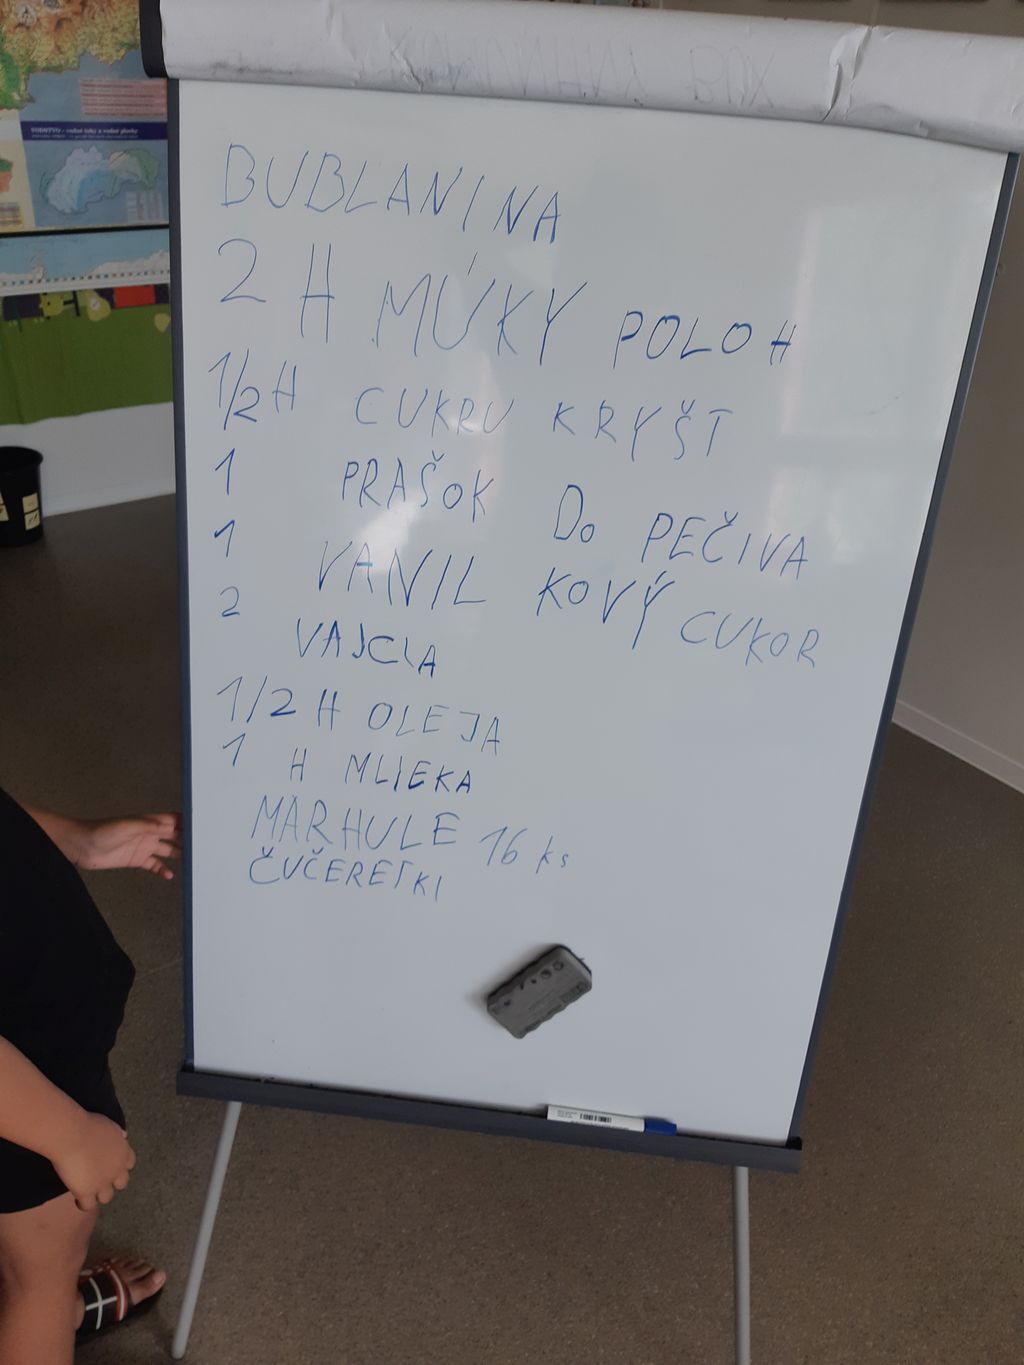 VODSTVO - vodné toky a vodné plochy
BUBLANINA
2 H MÚKY POLOH
1/2 H CUKRU KRYŠT
1 PRAŠOK Do PEČIVA
1 VANIL KOVÝ CUKOR
2 VAJCIA
1/2 H OLEJA
1 H MLIEKA
MARHULE 16 ks
ČUČERETKI